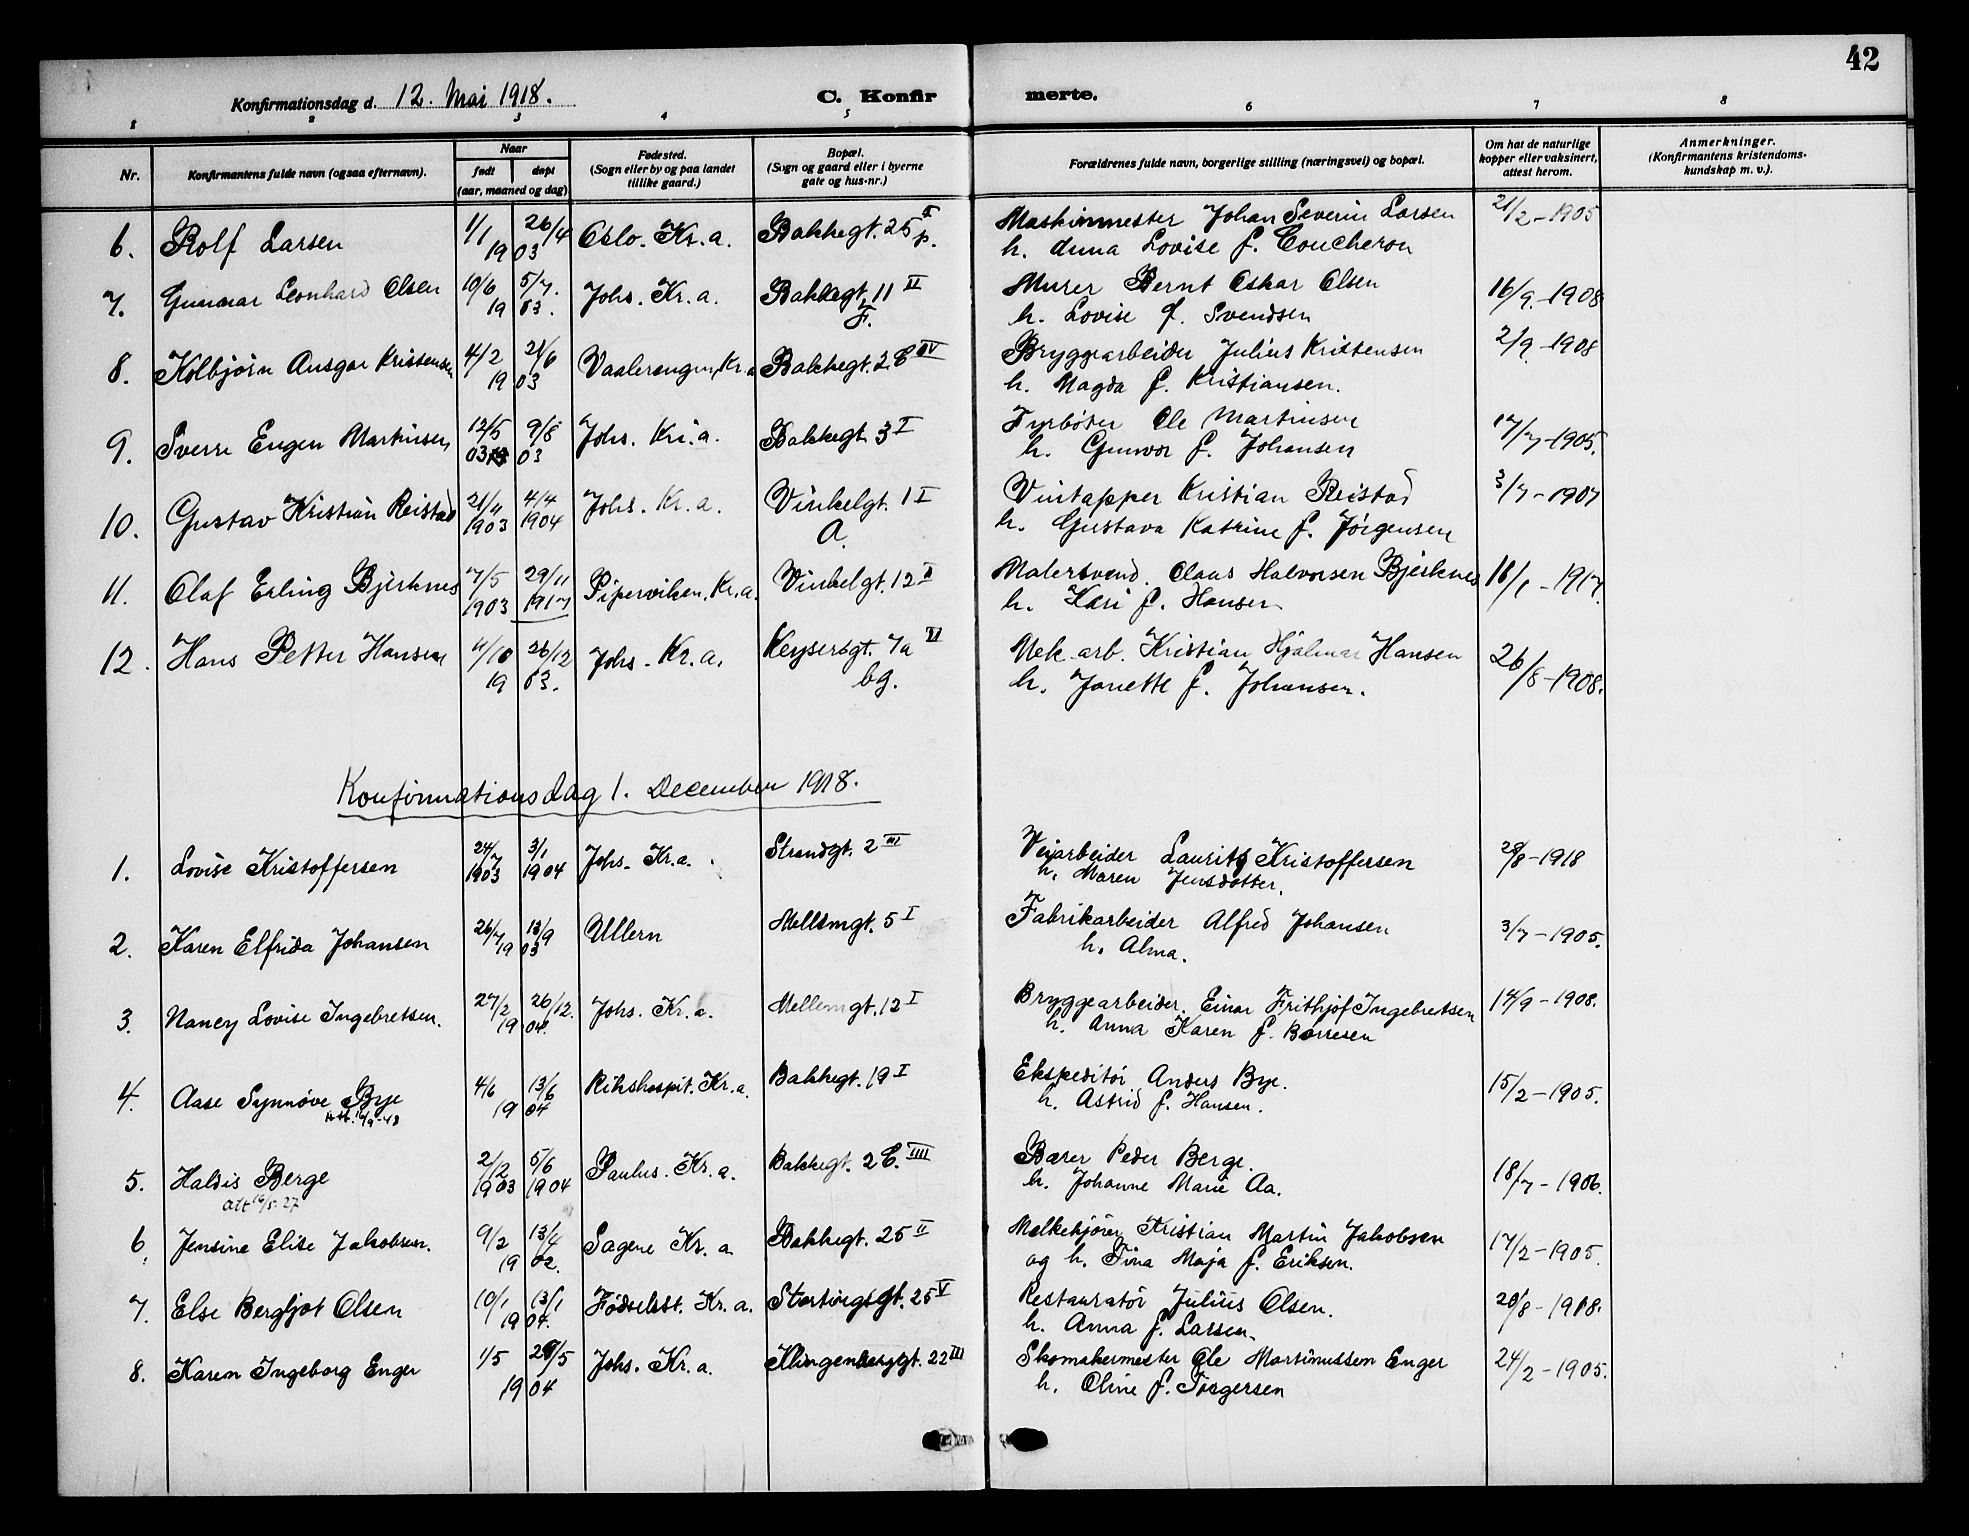 42
Konfirmationsdag d. 12. Mai 1918.
C. Konfir merte.
1 2 3 4 5 6 7 8
Nr.
Konfirmantens fulde navn (ogsaa efternavn).
Naar
født døpt
(aar, maaned og dag)
Fødested.
(Sogn eller by og paa landet
tillike gaard.)
Bopæl.
(Sogn og gaard eller i byerne
gate og hus-nr.)
Forældrenes fulde navn, borgerlige stilling (næringsvei) og bopæl.
Om hat de naturlige
kopper eller vaksinert,
attest herom.
Anmerkninger.
(Konfirmantens kristendoms-
kundskap m. v.).
6. Rolf Larsen 1/1 26/4 Oslo. Kr.a. Bakkegt. 25 p. Maskinmester Johan Severin Larsen 21/2-1905
19 03 h. Anna Lovise f. Coucheron
7. Gunnar Leonhard Olsen 10/6 5/7. Johs. Kr.a. Bakkegt. 11 II Murer Bernt Oskar Olsen 16/9-1908
19 03. F. h. Lovise f. Svendsen
8. Kolbjörn Ansgar Kristensen 4/2 21/6 Vaalerengen, Kr.a Bakkegt. 2 C IV Bryggearbeider Julius Kristensen 2/9-1908
19 03 h. Magda f. Kristiansen.
9. Sverre Eugen Martinsen 12/5 9/8 Johs. Kr.a. Bakkegt. 3 I Fyrböter Ole Martinsen 17/7-1905.
03 03 h. Gunvor f. Johansen
10. Gustav Kristian Reistad 21/11 4/4 Johs. Kr.a. Vinkelgt. 1 I Vintapper Kristian Reistad 3/7-1907
1903 1904 A. h. Gustava Katrine f. Jörgensen
11. Olaf Erling Bjerknes 7/5 29/11 Piperviken. Kr.a. Vinkelgt. 12 II Malersvend. Claus Halvorsen Bjerknes 18/1-1917.
1903 1917 h. Kari f. Hansen
12. Hans Petter Hansen 4/10 26/12 Johs. Kr.a. Keysersgt. 7a VI Mek. arb. Kristian Hjalmar Hansen 26/8-1908.
19 03. bg. h. Janette f. Johansen.
Konfirmationsdag 1. December 1918.
1. Lovise Kristoffersen 24/7 3/1 Johs. Kr.a. Strandgt. 2 III Veiarbeider Laurits Kristoffersen 28/8-1918
1903 1904 h. Maren Jensdatter.
2. Karen Elfrida Johansen 26/7 13/9 Ullern Mellemgt. 5 I Fabrikarbeider Alfred Johansen 3/7-1905.
19 03 h. Alma.
3. Nancy Lovise Ingebretsen. 27/2 26/12. Johs. Kr.a. Mellemgt. 12 I Bryggearbeider. Einar Frithjof Ingebretsen 14/9-1908.
19 04. h. Anna Karen f. Borresen
4. Aase Synnöve Bye 4/6 13/6 Rikshospit. Kr.a. Bakkegt. 19 I Ekspeditör Anders Bye. 15/2-1905.
19 04 h. Astrid f. Hansen.
5. Haldis Berge 2/12 5/6 Paulus. Kr.a. Bakkegt. 2 C. IIII Bærer Peder Berge. 18/7-1906.
att 16/5-27 1903 1904 h. Johanne Marie Aa.
6. Jensine Elise Jakobsen. 9/2 13/4 Sagene Kr.a Bakkegt. 25 II Melkekjörer Kristian Martin Jakobsen 17/2-1905.
19 02. og h. Tina Maja f. Eriksen.
7. Else Bergljot Olsen 10/1 13/1 Födselsst. Kr.a. Stortingsgt. 25 V Restauratör Julius Olsen. 20/8-1918.
19 04. h. Anna f. Larsen.
8. Karen Ingeborg Enger 1/5 29/5 Johs. Kr.a. Klingenberggt. 22 III Skomakermester Ole Martinussen Enger 24/2-1905.
19 04 h. Oline f. Torgersen